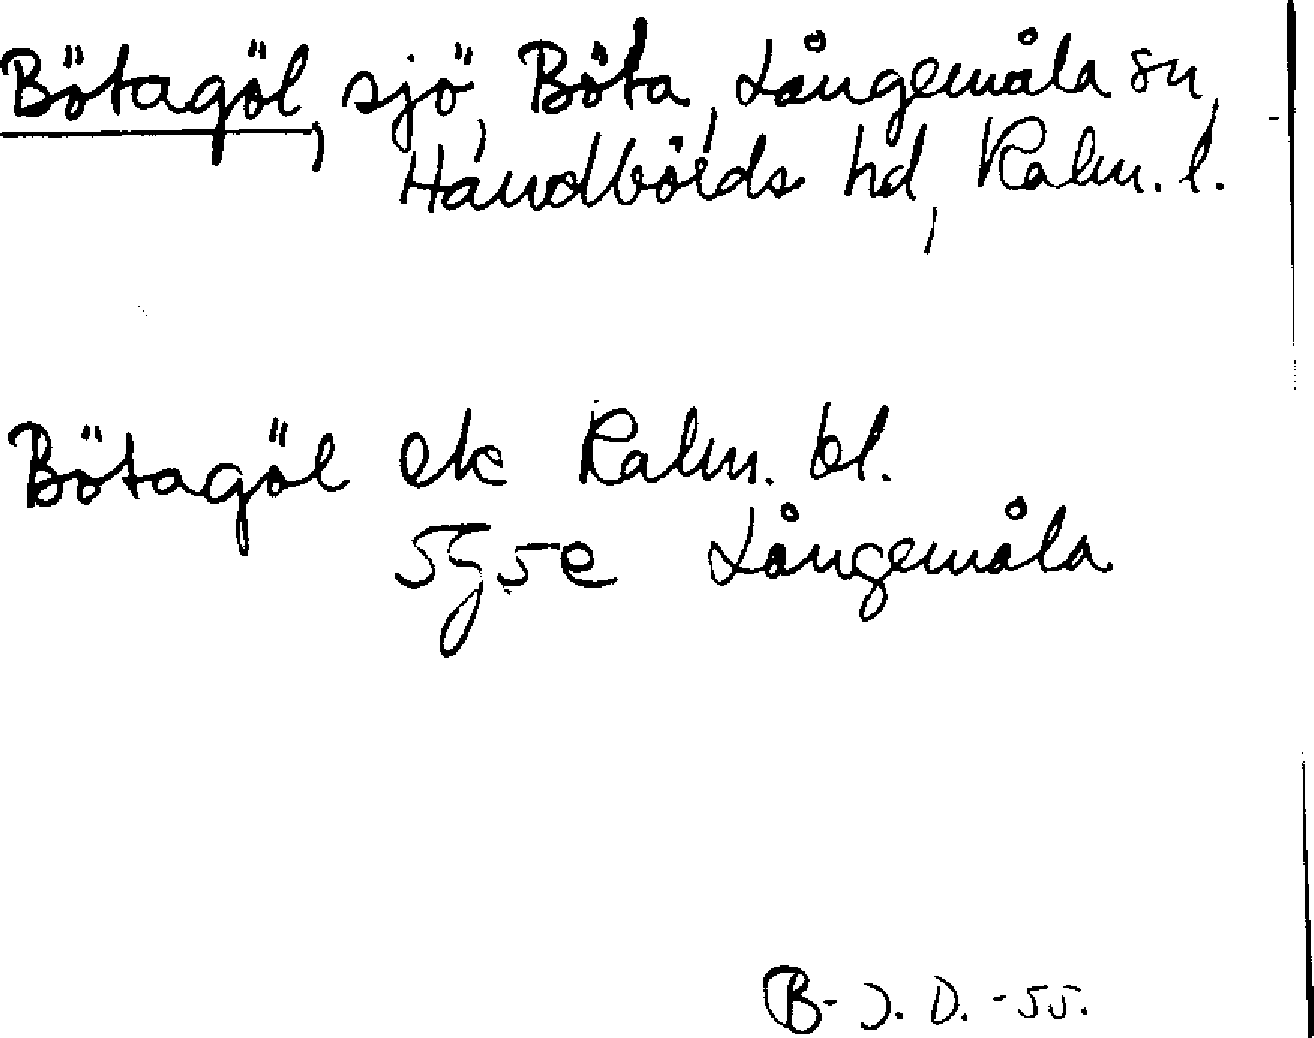 Bötagöl, sjö, Böta, Långemåla sn,
Handbörds hd, Kalm. l.
Bötagöl ek Kalm. bl.
5g5e Långemåla
B-J. D. -55.